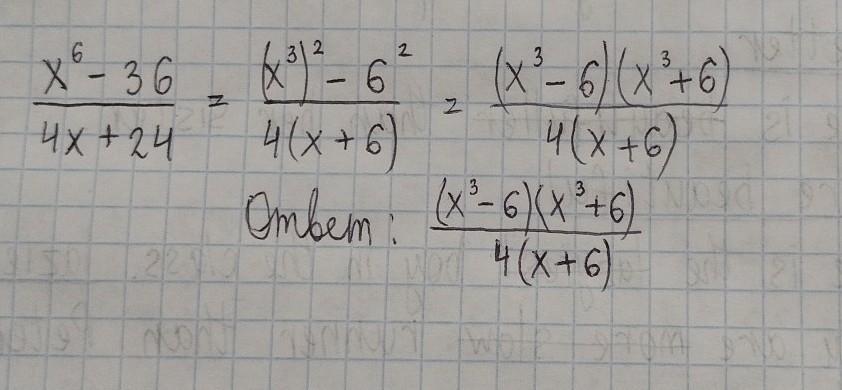 (x⁶ - 36)/(4x + 24) = ((x³)² - 6²)/(4(x + 6)) = ((x³ - 6)(x³ + 6))/(4(x + 6))
Ответ: ((x³ - 6)(x³ + 6))/(4(x + 6))